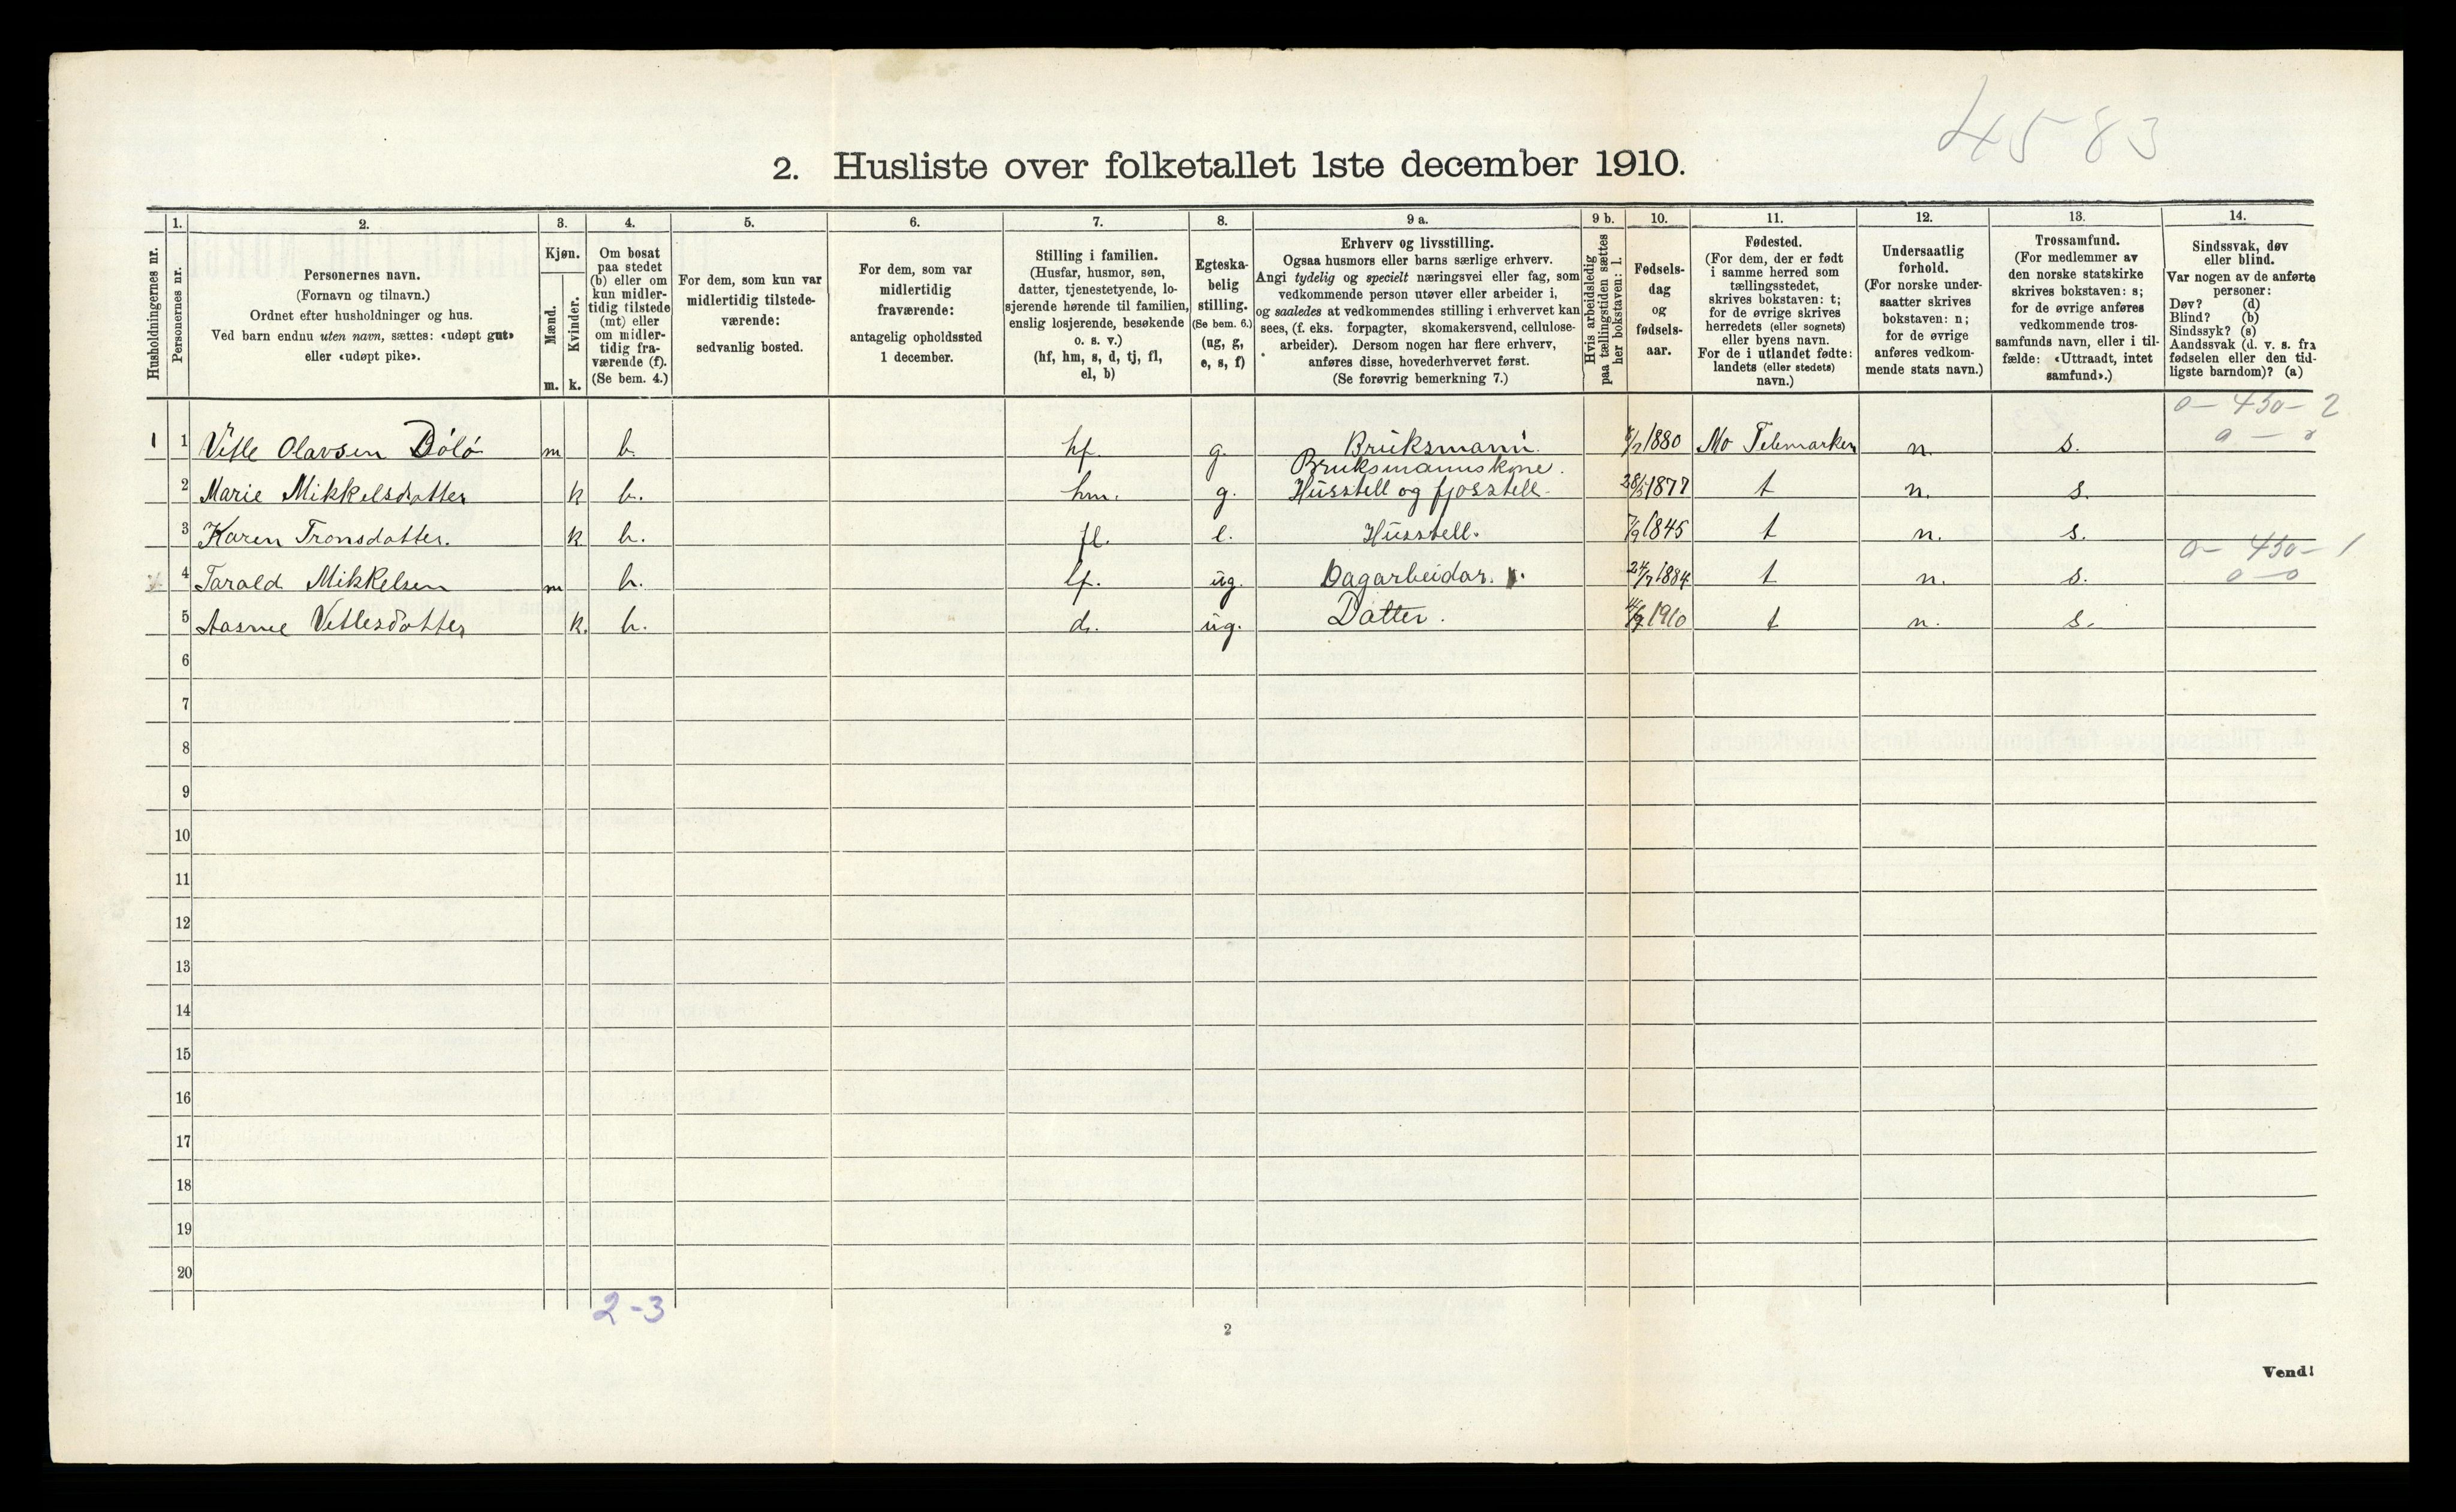 4583
2. Husliste over folketallet 1ste december 1910.
Husholdningernes nr.
1.
Personernes nr.
2.
Personernes navn.
(Fornavn og tilnavn.)
Ordnet efter husholdninger og hus.
Ved barn endnu uten navn, sættes: «udøpt gut»
eller «udøpt pike».
3.
Kjøn.
Mænd.
m.
Kvinder.
k.
4.
Om bosat
paa stedet
(b) eller om
kun midler-
tidig tilstede
(mt) eller
om midler-
tidig fra-
værende (f).
(Se bem. 4.)
5.
For dem, som kun var
midlertidig tilstede-
værende:
sedvanlig bosted.
6.
For dem, som var
midlertidig
fraværende:
antagelig opholdssted
1 december.
7.
Stilling i familien.
(Husfar, husmor, søn,
datter, tjenestetyende, lo-
sjerende hørende til familien,
enslig losjerende, besøkende
o. s. v.)
(hf, hm, s, d, tj, fl,
el, b)
8.
Egteska-
belig
stilling.
(Se bem. 6.)
(ug, g,
e, s, f)
9 a.
Erhverv og livsstilling.
Ogsaa husmors eller barns særlige erhverv.
Angi tydelig og specielt næringsvei eller fag, som
vedkommende person utøver eller arbeider i,
og saaledes at vedkommendes stilling i erhvervet kan
sees, (f. eks. forpagter, skomakersvend, cellulose-
arbeider). Dersom nogen har flere erhverv,
anføres disse, hovederhvervet først.
(Se forøvrig bemerkning 7.)
9 b.
Hvis arbeidsledig
paa tællingstiden sættes
her bokstaven: l.
10.
Fødsels-
dag
og
fødsels-
aar.
11.
Fødested.
(For dem, der er født
i samme herred som
tællingsstedet,
skrives bokstaven: t;
for de øvrige skrives
herredets (eller sognets)
eller byens navn.
For de i utlandet fødte:
landets (eller stedets)
navn.)
12.
Undersaatlig
forhold.
(For norske under-
saatter skrives
bokstaven: n;
for de øvrige
anføres vedkom-
mende stats navn.)
13.
Trossamfund.
(For medlemmer av
den norske statskirke
skrives bokstaven: s;
for de øvrige anføres
vedkommende tros-
samfunds navn, eller i til-
fælde: «Uttraadt, intet
samfund».)
14.
Sindssvak, døv
eller blind.
Var nogen av de anførte
personer:
Døv? (d)
Blind? (b)
Sindssyk? (s)
Aandssvak (d. v. s. fra
fødselen eller den tid-
ligste barndom)? (a)
0 - 450 - 2
1 1 Vetle Olavsen Dölö m b. hf. g. Bruksmann. 1880 Mo Telemarken n. s.
Bruksmannskone.
2 Marie Mikkelsdatter k b. hm. g. Husstell og fjosstell. 1877 t n. s.
3 Karen Tronsdatter. k b. fl. e. Husstell. 1845 t n. s.
0 - 450 - 1
4 Tarald Mikkelsen m b. lf. ug. Dagarbeidar. 24/7 1884 t n. s. 0 - 0
5 Aasne Vetlesdatter k. b. d. ug. Datter. 1910 t n. s.
6
7
8
9
10
11
12
13
14
15
16
17
18
19
20
2-3
2
Vend!